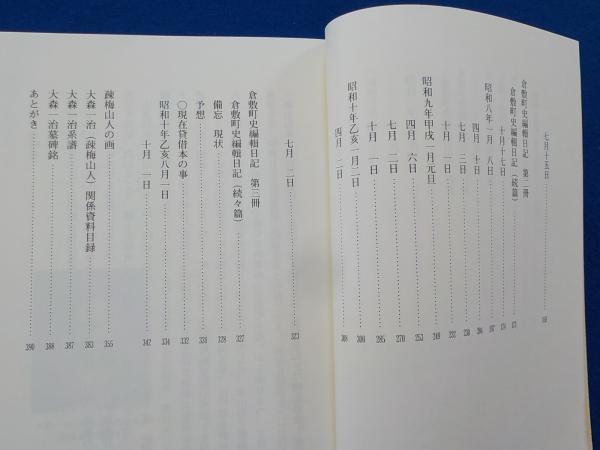 七月十五日 168
倉敷町史編輯日記 第二冊
倉敷町史編輯日記(続篇) 171
十月十七日 174
昭和八年一月八日 196
四月十日 204
七月三日 230
十月一日 232
昭和九年甲戌一月元旦 249
四月六日 253
七月二日 270
十月一日 285
昭和十年乙亥一月二日 300
四月二日 308
七月二日 323
倉敷町史編輯日記 第三冊
倉敷町史編輯日記(続々篇) 327
備忘 現状 328
予想 331
〇現在貸借本の事 332
昭和十年乙亥八月一日 334
十月一日 342
疎梅山人の画 355
大森一治(疎梅山人)関係資料目録 383
大森一治系譜 387
大森一治墓碑銘 388
あとがき 390